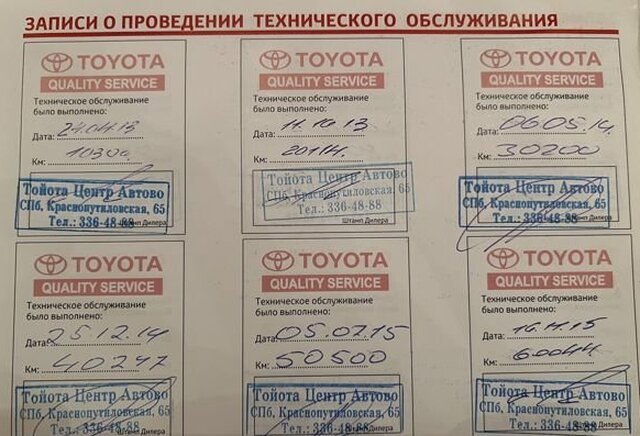 ЗАПИСИ О ПРОВЕДЕНИИ ТЕХНИЧЕСКОГО ОБСЛУЖИВАНИЯ
TOYOTA
QUALITY SERVICE
Техническое обслуживание
было выполнено:
Дата: 24.04.13
Км: 10300
Тойота Центр Автово
СПб, Краснопутиловская, 65
Тел.: 336-48-88
Штамп Дилера
TOYOTA
QUALITY SERVICE
Техническое обслуживание
было выполнено:
Дата: 11.10.13
Км: 20114
Тойота Центр Автово
СПб, Краснопутиловская, 65
Тел.: 336-48-88
Штамп Дилера
TOYOTA
QUALITY SERVICE
Техническое обслуживание
было выполнено:
Дата: 06.05.14
Км: 30200
Тойота Центр Автово
СПб, Краснопутиловская, 65
Тел.: 336-48-88
Штамп Дилера
TOYOTA
QUALITY SERVICE
Техническое обслуживание
было выполнено:
Дата: 25.12.14
Км: 40247
Тойота Центр Автово
СПб, Краснопутиловская, 65
Тел.: 336-48-88
Штамп Дилера
TOYOTA
QUALITY SERVICE
Техническое обслуживание
было выполнено:
Дата: 05.07.15
Км: 50500
Тойота Центр Автово
СПб, Краснопутиловская, 65
Тел.: 336-48-88
Штамп Дилера
TOYOTA
QUALITY SERVICE
Техническое обслуживание
было выполнено:
Дата: 16.11.15
Км: 60044
Тойота Центр Автово
СПб, Краснопутиловская, 65
Тел.: 336-48-88